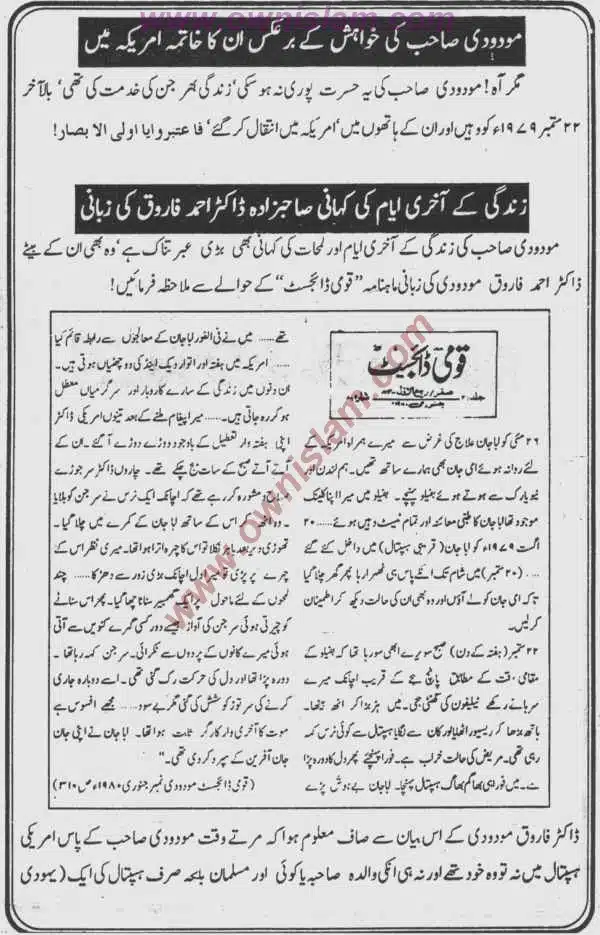 www.ownislam.com
مودودی صاحب کی خواہش کے برعکس ان کا خاتمہ امریکہ میں
مگر آہ! مودودی صاحب کی یہ حسرت پوری نہ ہو سکی' زندگی بھر جن کی خدمت کی تھی' بالآخر
۲۲ ستمبر ۱۹۷۹ء کو وہیں اور ان کے ہاتھوں میں' امریکہ میں انتقال کر گئے' فاعتبروا یا اولی الابصار!
زندگی کے آخری ایام کی کہانی صاحبزادہ ڈاکٹر احمد فاروق کی زبانی
مودودی صاحب کی زندگی کے آخری ایام اور لمحات کی کہانی بھی بڑی عبرتناک ہے' وہ بھی ان کے بیٹے
ڈاکٹر احمد فاروق مودودی کی زبانی ماہنامہ "قومی ڈائجسٹ" کے حوالے سے ملاحظہ فرمائیں!
قومی ڈائجسٹ
جلد
شمارہ
۲۶ مئی کو ابا جان علاج کی غرض سے میرے ہمراہ امریکہ کے
لئے روانہ ہوئے امی جان بھی ہمارے ساتھ تھیں۔ ہم لندن اور
نیویارک سے ہوتے ہوئے بفیلو پہنچے۔ بفیلو میں میرا اپنا کلینک
موجود تھا ابا جان کا طبی معائنہ اور تمام ٹیسٹ وہیں ہوئے ...... ۲۰
اگست ۱۹۷۹ء کو ابا جان (قریبی ہسپتال) میں داخل کئے گئے
.... (۲۰ ستمبر) میں شام تک انکے پاس ہی ٹھہرا رہا پھر گھر چلا گیا
تاکہ امی جان کو لے آؤں اور وہ بھی ان کی حالت دیکھ کر اطمینان
کر لیں۔
۲۲ ستمبر (ہفتہ کے دن) صبح سویرے ابھی سو رہا تھا کہ بفیلو کے
مقامی وقت کے مطابق پانچ بجے کے قریب اچانک میرے
سرہانے رکھے ٹیلیفون کی گھنٹی بجی۔ میں ہڑبڑا کر اٹھ بیٹھا۔
ہاتھ بڑھا کر ریسیور اٹھایا اور کان سے لگایا ہسپتال سے کوئی نرس کہہ
رہی تھی۔ مریض کی حالت خراب ہے۔ فوراً پہنچئے پھر دل کا دورہ پڑا
ہے۔ میں فوراً ہی بھاگم بھاگ ہسپتال پہنچا۔ ابا جان بے ہوش پڑے
تھے ...... میں نے فی الفور ابا جان کے معالجوں سے رابطہ قائم کیا
امریکہ میں ہفتہ اور اتوار ویک اینڈ کی دو چھٹیاں ہوتی ہیں۔
ان دنوں میں زندگی کے سارے کاروبار اور سرگرمیاں معطل
ہو کر رہ جاتی ہیں۔ ...... میرا پیغام ملتے ہی تینوں امریکی ڈاکٹر
اپنی ہفتہ وار تعطیل کے باوجود دوڑے دوڑے آ گئے۔ ان کے
آتے آتے صبح کے سات بج چکے تھے۔ چاروں ڈاکٹر سر جوڑے
صلاح و مشورہ کر رہے تھے کہ اچانک ایک نرس نے سرجن کو بلایا
۔ وہ اٹھ کر اس کے ساتھ ابا جان کے کمرے میں چلا گیا۔
تھوڑی دیر بعد باہر نکلا تو اس کا چہرہ اترا ہوا تھا۔ میری نظر اس کے
چہرے پر پڑی تو میرا دل اچانک بڑی زور سے دھڑکا ...... چند
لمحوں کے لئے ماحول پر ایک گھمبیر سناٹا چھا گیا۔ پھر اس سناٹے
کو چیرتی ہوئی سرجن کی آواز جیسے دور کسی گہرے کنویں سے آتی
ہوئی میرے کانوں کے پردوں سے ٹکرائی۔ سرجن کہہ رہا تھا۔
دورہ پڑا تھا اور دل کی حرکت رک گئی تھی۔ اسے دوبارہ جاری
کرنے کی سر توڑ کوشش کی گئی مگر بے سود ...... مجھے افسوس ہے
موت کا آخری وار کارگر ثابت ہوا تھا۔ ابا جان نے اپنی جان
جان آفرین کے سپرد کر دی تھی۔"
(قومی ڈائجسٹ مودودی نمبر جنوری ۱۹۸۰ء ص ۳۱۰)
ڈاکٹر فاروق مودودی کے اس بیان سے صاف معلوم ہوا کہ مرتے وقت مودودی صاحب کے پاس امریکی
ہسپتال میں نہ تو وہ خود تھے اور نہ ہی انکی والدہ صاحبہ یا کوئی اور مسلمان بلکہ صرف ہسپتال کی ایک (یہودی
www.ownislam.com